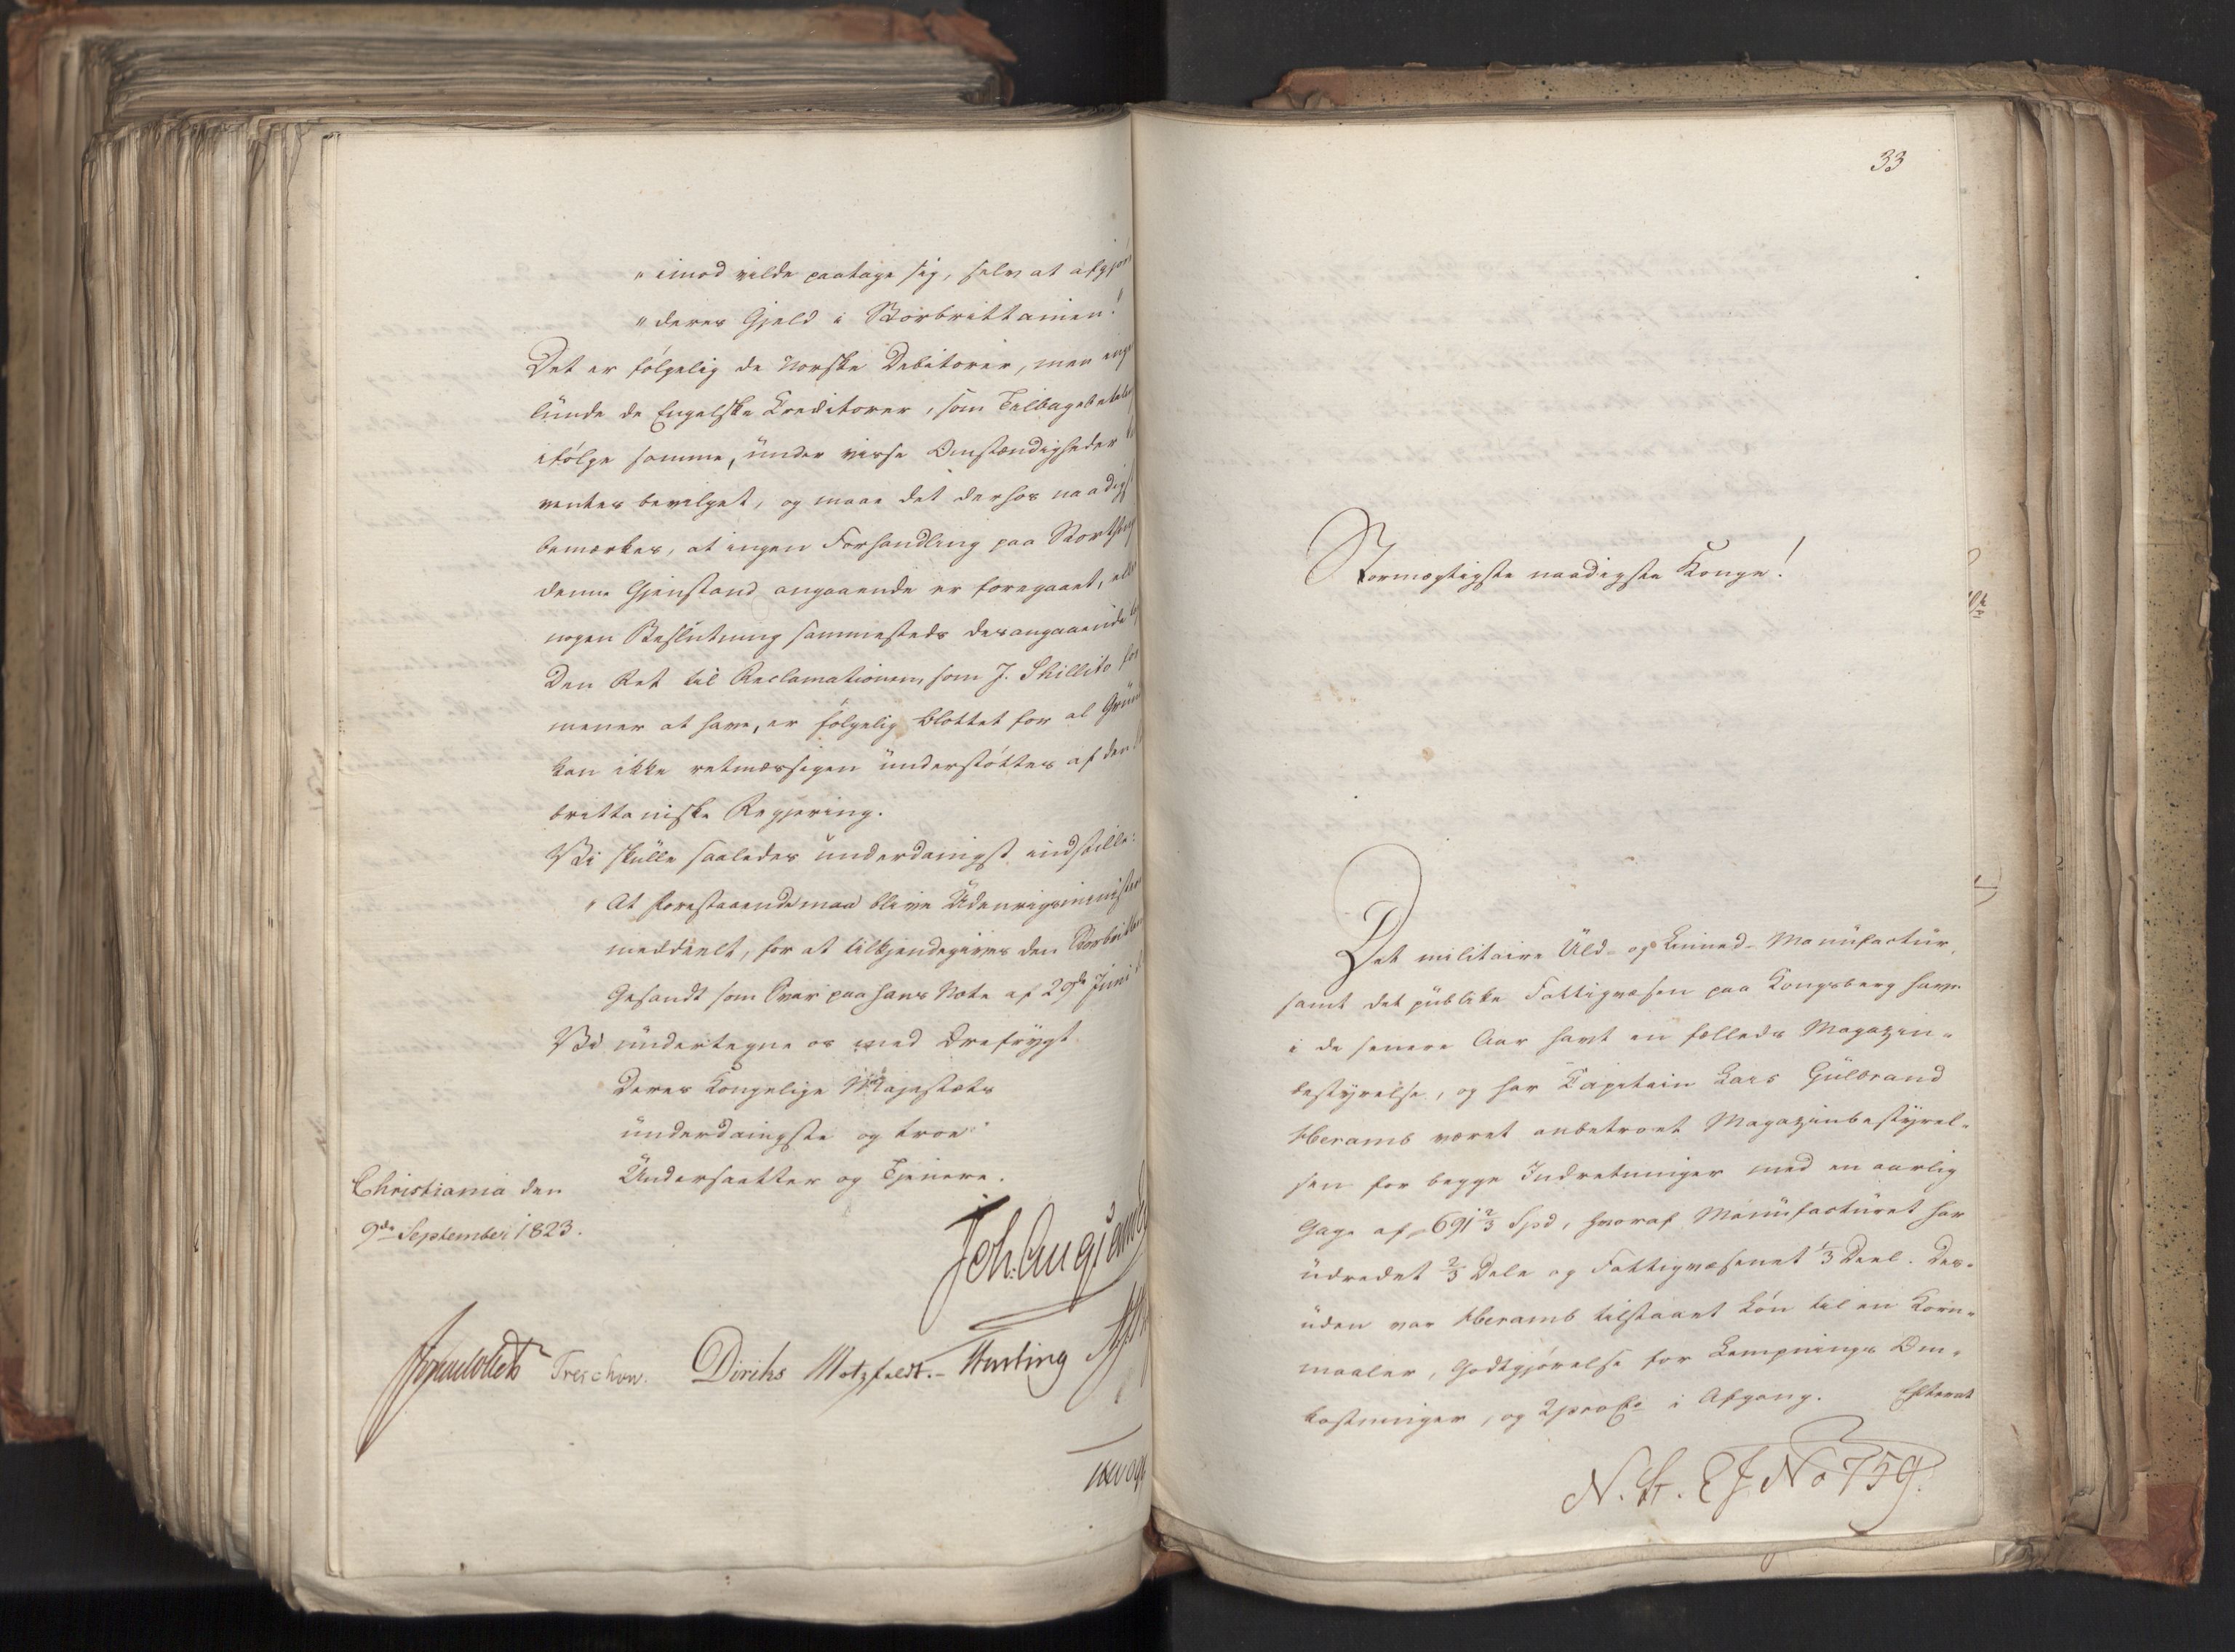 „imod vilde paatage sig, selv at afgjøre
„deres Gjeld i Storbrittanien!"
Det er følgelig de norske Debitorer, men inge
lunde de Engelske Creditorer, som Tilbagebetaling
ifølge samme, under visse Omstændigheder
ventes bevilget, og maae det derhos naadigst
bemærkes, at ingen Forhandling paa Storthing
denne Gjenstand angaaende er foregaaet, eller
nogen Beslutning sammesteds desangaaende
Den Ret til Reclamationen, som J. Shillito for
mener at have, er følgelig blottet for al Grund
kan ikke retmæssigen understøttes af den
brittaniske Regjering.
Vi skulle saaledes underdanigst indstille:
„At forestaaende maa blive Udenrigsminister
meddeelt, for at tilkjendegives den Storbritt
Gesandt som Svar paa hans Note af 29de Juni
Vi undertegne os med Ærefrygt
Deres Kongelige Majestæts
underdanigste og troe
Undersaatter og Tjenere.
Christiania den
9de September 1823.
Joh. Aug. Sand
Sommerhielm Treschow. Diriks Motzfeldt. Fasting
33
Stormægtigste naadigste Konge!
Det militaire Uld- og Linned-Manufactur
samt det publike Fattigvæsen paa Kongsberg have
i de senere Aar havt en fælleds Magazin-
bestyrelse, og har Capitain Lars Gulbrand
Heramb været anbetroet Magazinbestyrel-
sen for begge Indretninger med en aarlig
Gage af 691 2/3 Spd, hvoraf Manufacturet har
udredet 2/3 Dele og Fattigvæsenet 1/3 Deel. Des-
uden var Heramb tilstaaet Løn til en Korn-
maaler, Godtgjørelse for Lempnings Om-
kostninger, og 2 pro Ct. i Afgang. Efterat
N. St. E J No 759.